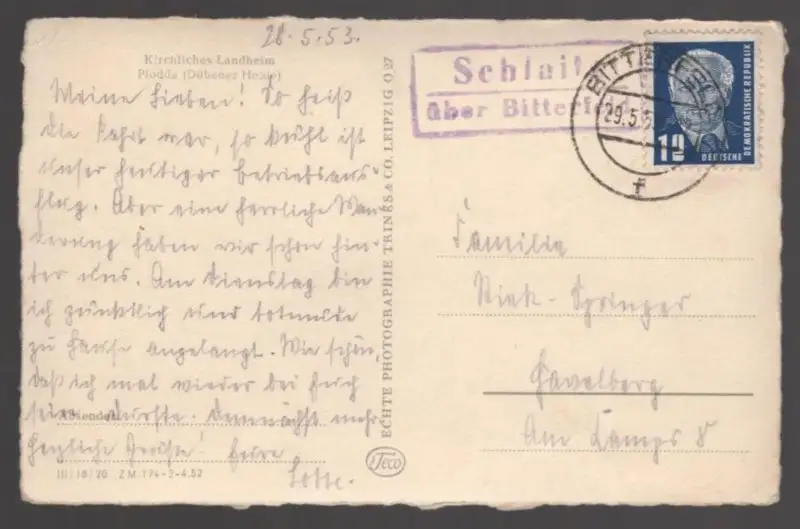 28.5.53.
Kirchliches Landheim
Plodda (Dübener Heide)
Meine Lieben! So heiß
die Fahrt war, so kühl ist
unser heutiger Betriebsaus-
flug. Aber eine herrliche Wan-
derung haben wir schon hin-
ter uns. Am Dienstag bin
ich pünktlich und totmüde
zu Hause angelangt. Wie schön,
daß ich mal wieder bei Euch
sein durfte. Demnächst mehr
Absender:
herzliche Grüße! Eure
Lotte.
III/18/26 ZM 174-2-4.52
ECHTE PHOTOGRAPHIE TRINKS & CO. LEIPZIG O 27
Teco
Schlait
über Bitterfeld
BITTERFELD
29.5.5
12
DEUTSCHE
DEMOKRATISCHE REPUBLIK
Familie
Springer
Havelberg
Am Camps 8